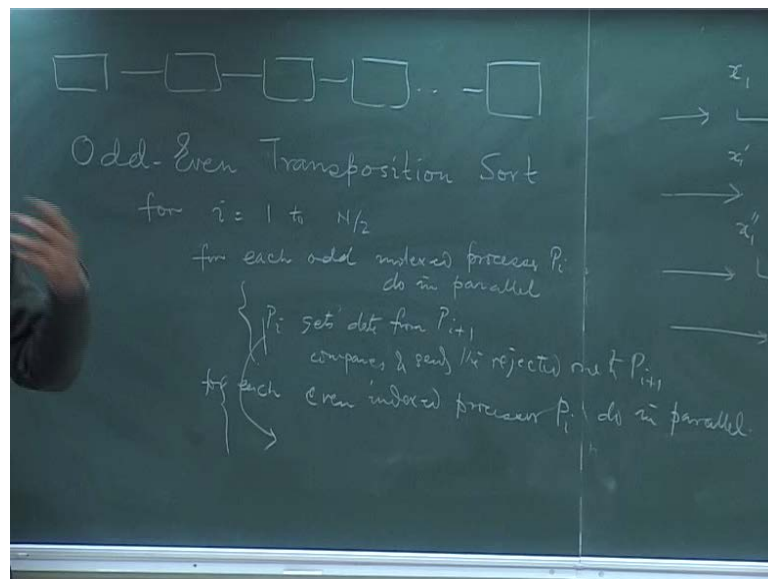 Odd-Even Transposition Sort
for i = 1 to N/2
for each odd indexed processor Pi
do in parallel
Pi gets data from Pi+1
compares & sends the rejected one to Pi+1
for each even indexed processor Pi do in parallel.
x1
x1'
x1''